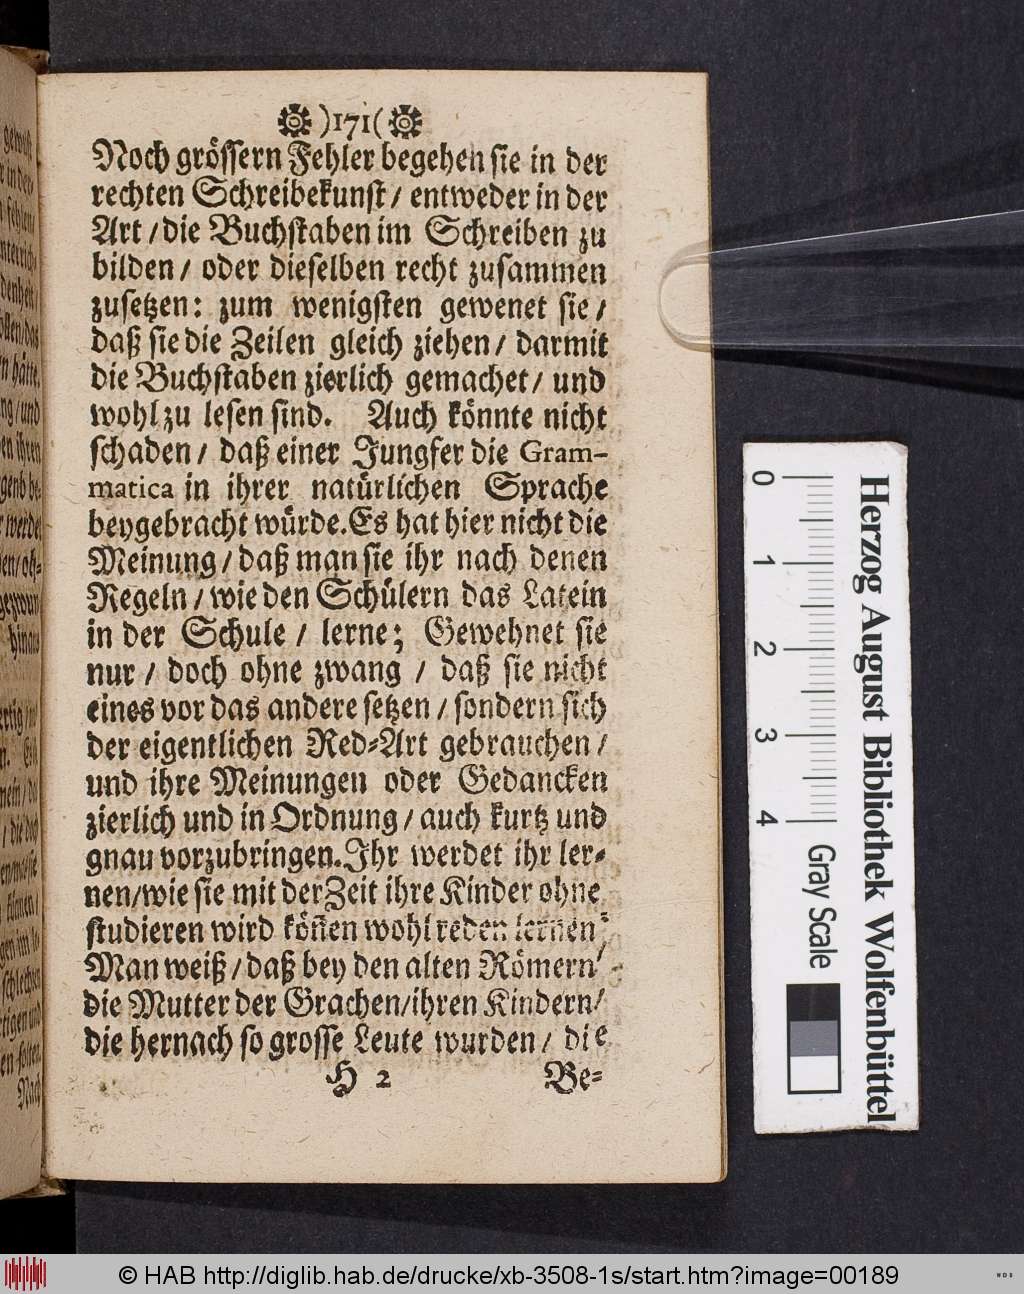 )171(
Noch grössern Fehler begehen sie in der
rechten Schreibekunst / entweder in der
Art / die Buchstaben im Schreiben zu
bilden / oder dieselben recht zusammen
zusetzen: zum wenigsten gewenet sie /
daß sie die Zeilen gleich ziehen / darmit
die Buchstaben zierlich gemachet / und
wohl zu lesen sind. Auch könnte nicht
schaden / daß einer Jungfer die Gram-
matica in ihrer natürlichen Sprache
beygebracht würde. Es hat hier nicht die
Meinung / daß man sie ihr nach denen
Regeln / wie den Schülern das Latein
in der Schule / lerne; Gewehnet sie
nur / doch ohne zwang / daß sie nicht
eines vor das andere setzen / sondern sich
der eigentlichen Red-Art gebrauchen /
und ihre Meinungen oder Gedancken
zierlich und in Ordnung / auch kurtz und
gnau vorzubringen. Ihr werdet ihr ler-
nen / wie sie mit der Zeit ihre Kinder ohne
studieren wird köñen wohl reden lernen;
Man weiß / daß bey den alten Römern /
die Mutter der Grachen / ihren Kindern /
die hernach so grosse Leute wurden / die
H 2 Be-
0 1 2 3 4 Gray Scale
Herzog August Bibliothek Wolfenbüttel
© HAB http://diglib.hab.de/drucke/xb-3508-1s/start.htm?image=00189